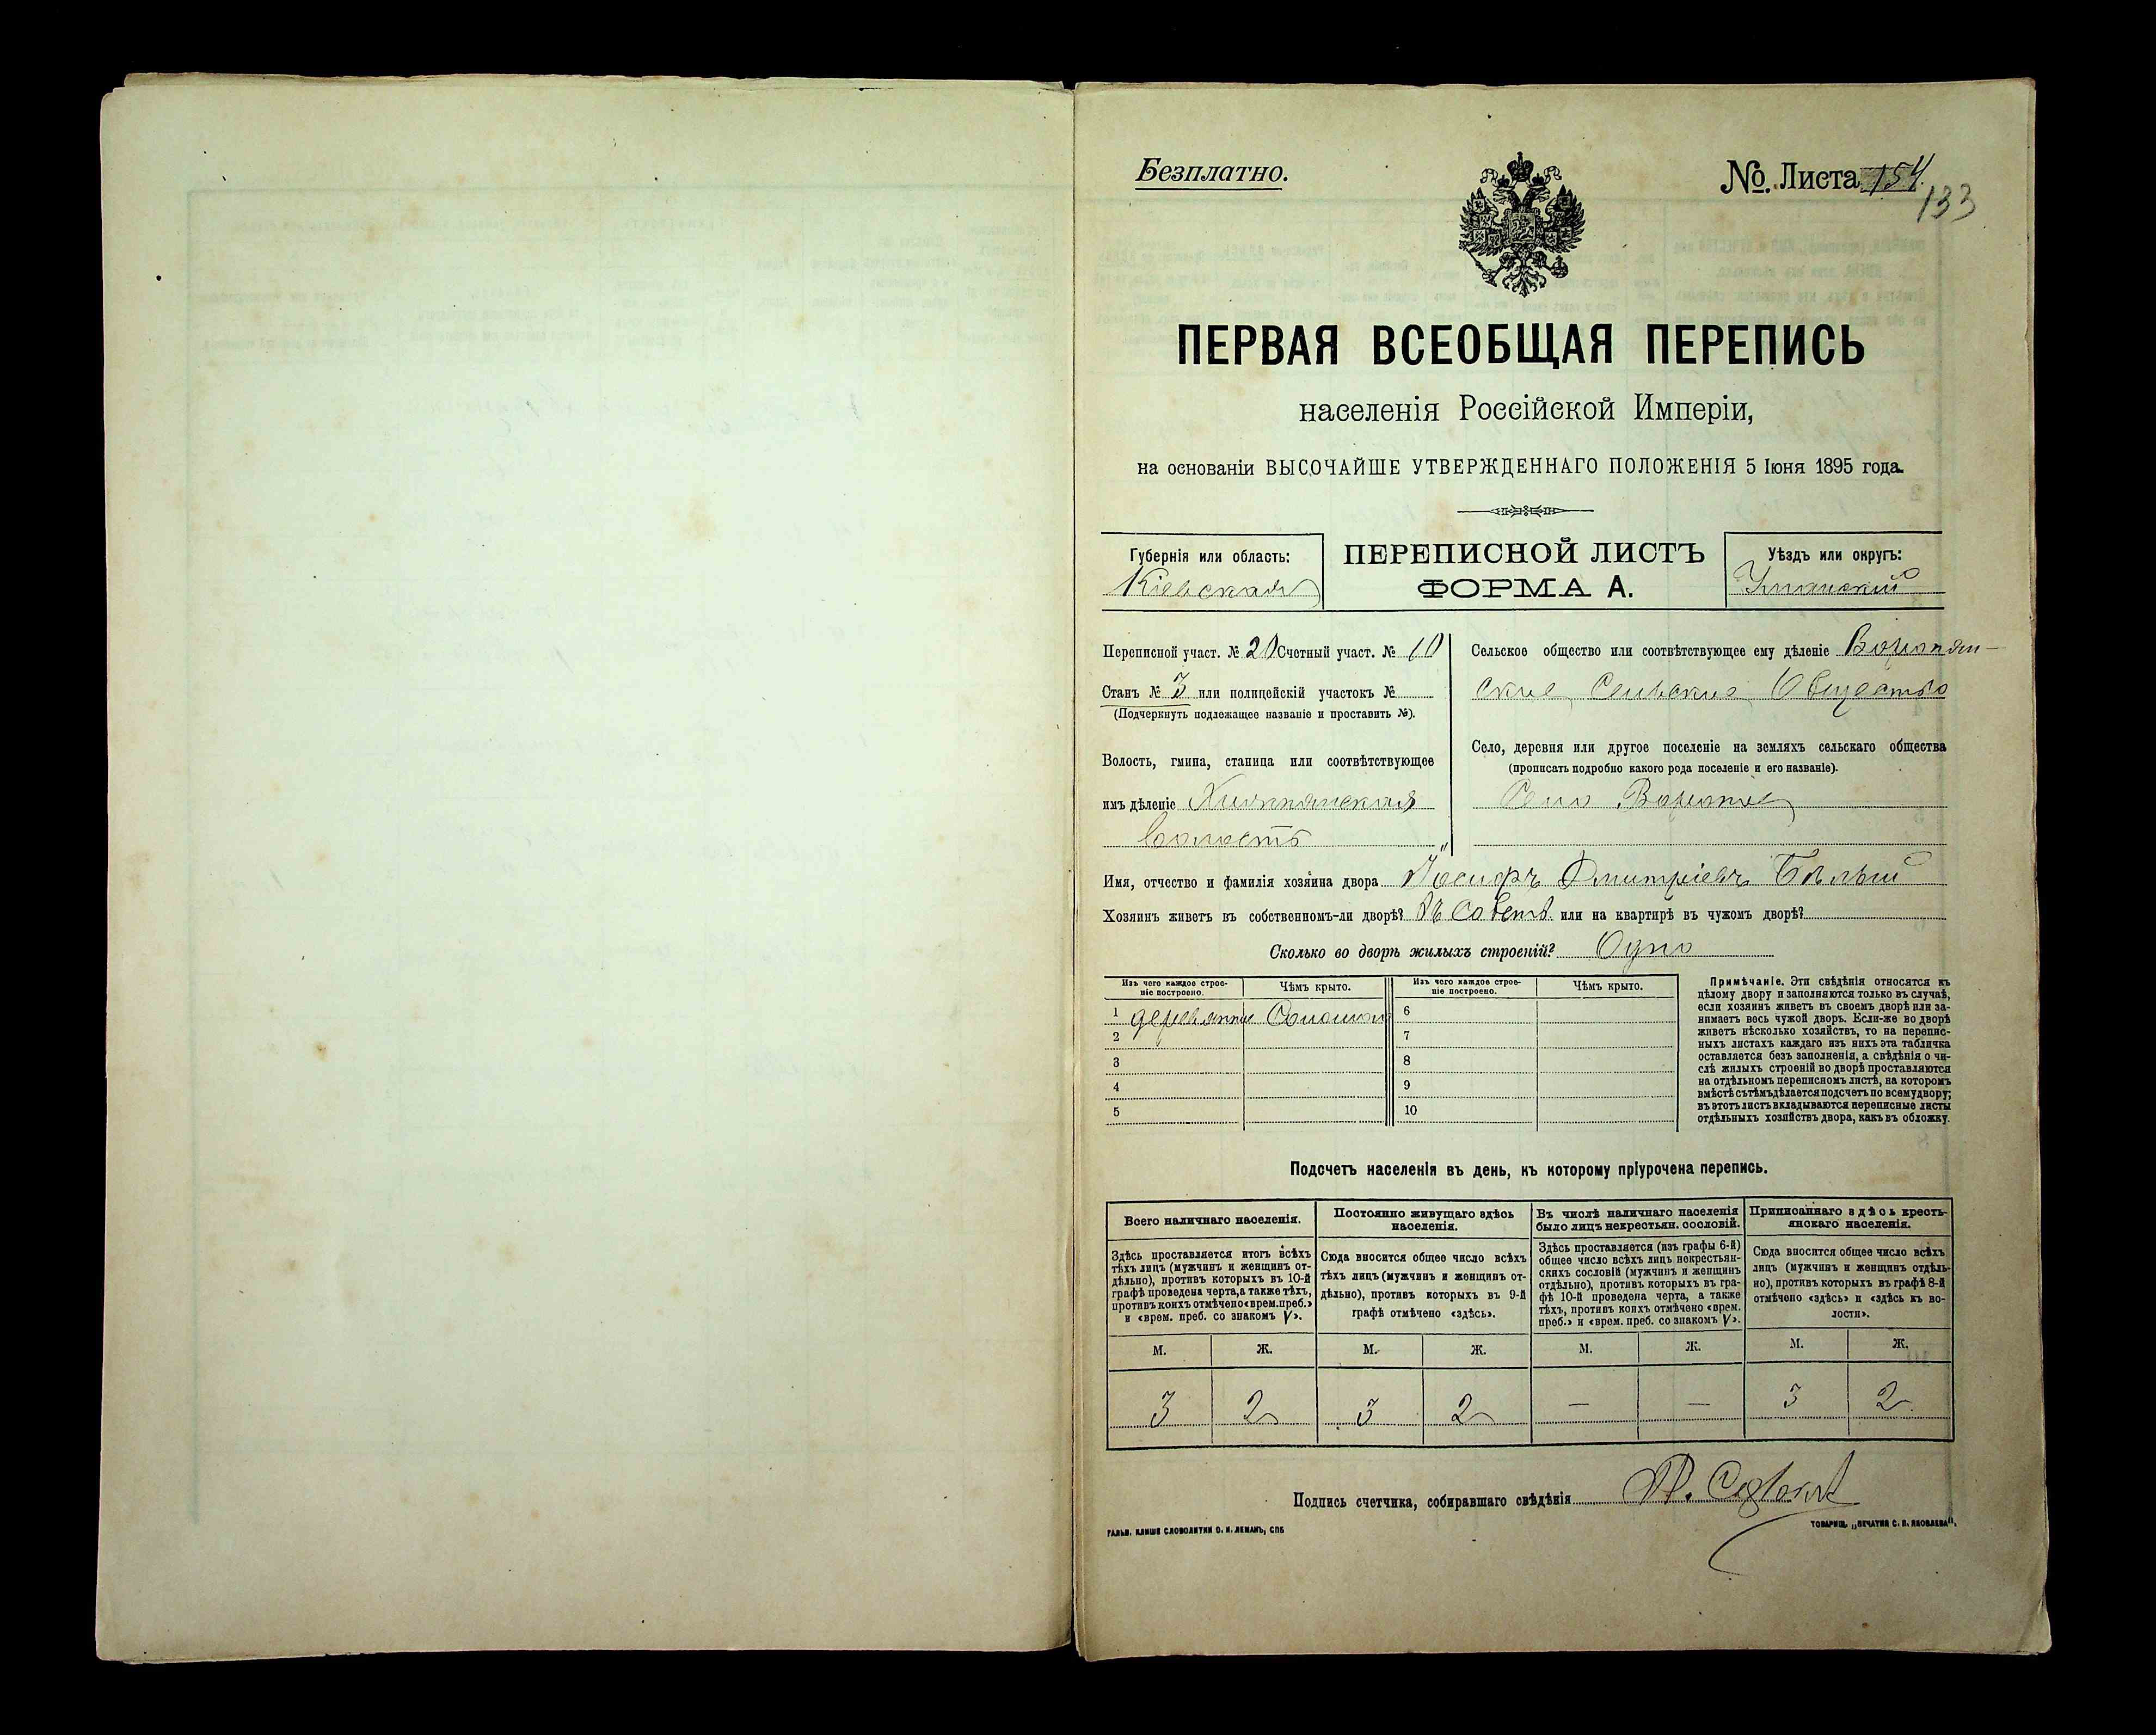 Безплатно.
№ Листа 154.
133
ПЕРВАЯ ВСЕОБЩАЯ ПЕРЕПИСЬ
населенія Россійской Имперіи,
на основаніи ВЫСОЧАЙШЕ УТВЕРЖДЕННАГО ПОЛОЖЕНІЯ 5 Іюня 1895 года.
Губернія или область:
Кіевская
ПЕРЕПИСНОЙ ЛИСТЪ
ФОРМА А.
Уѣздъ или округъ:
Уманскій
Переписной участ. № 20 Счетный участ. № 10
Станъ № 3 или полицейскій участокъ №
(Подчеркнуть подлежащее названіе и проставить №).
Волость, гмина, станица или соотвѣтствующее
имъ дѣленіе
волость
Сельское общество или соотвѣтствующее ему дѣленіе
ское Сельское Общество
Село, деревня или другое поселеніе на земляхъ сельскаго общества
(прописать подробно какого рода поселеніе и его названіе).
Село
Имя, отчество и фамилія хозяина двора Іосифъ Дмитріевъ Бѣлый
Хозяинъ живетъ въ собственномъ-ли дворѣ? Въ собств. или на квартирѣ въ чужомъ дворѣ?
Сколько во дворѣ жилыхъ строеній? Одно
Изъ чего каждое строе-
ніе построено.
Чѣмъ крыто.
Изъ чего каждое строе-
ніе построено.
Чѣмъ крыто.
1 деревянное Соломой
2
3
4
5
6
7
8
9
10
Примѣчаніе. Эти свѣдѣнія относятся къ
цѣлому двору и заполняются только въ случаѣ,
если хозяинъ живетъ въ своемъ дворѣ или за-
нимаетъ весь чужой дворъ. Если-же во дворѣ
живетъ нѣсколько хозяйствъ, то на перепис-
ныхъ листахъ каждаго изъ нихъ эта табличка
оставляется безъ заполненія, а свѣдѣнія о чи-
слѣ жилыхъ строеній во дворѣ проставляются
на отдѣльномъ переписномъ листѣ, на которомъ
вмѣстѣ съ тѣмъ дѣлается подсчетъ по всему двору;
въ этотъ листъ вкладываются переписные листы
отдѣльныхъ хозяйствъ двора, какъ въ обложку.
Подсчетъ населенія въ день, къ которому пріурочена перепись.
Всего наличнаго населенія.
Здѣсь проставляется итогъ всѣхъ
тѣхъ лицъ (мужчинъ и женщинъ от-
дѣльно), противъ которыхъ въ 10-й
графѣ проведена черта, а также тѣхъ,
противъ коихъ отмѣчено «врем. преб.»
и «врем. преб. со знакомъ V».
Постоянно живущаго здѣсь
населенія.
Сюда вносится общее число всѣхъ
тѣхъ лицъ (мужчинъ и женщинъ от-
дѣльно), противъ которыхъ въ 9-й
графѣ отмѣчено «здѣсь».
Въ числѣ наличнаго населенія
было лицъ некрестьян. сословій.
Здѣсь проставляется (изъ графы 6-й)
общее число всѣхъ лицъ некрестьян-
скихъ сословій (мужчинъ и женщинъ
отдѣльно), противъ которыхъ въ гра-
фѣ 10-й проведена черта, а также
тѣхъ, противъ коихъ отмѣчено «врем.
преб.» и «врем. преб. со знакомъ V».
Приписаннаго здѣсь кресть-
янскаго населенія.
Сюда вносится общее число всѣхъ
лицъ (мужчинъ и женщинъ отдѣль-
но), противъ которыхъ въ графѣ 8-й
отмѣчено «здѣсь» и «здѣсь въ во-
лости».
М. Ж. М. Ж. М. Ж. М. Ж.
3 2 3 2 — — 3 2
Подпись счетчика, собиравшаго свѣдѣнія
ГАЛЬВ. КЛИШЕ СЛОВОЛИТНИ О. И. ЛЕМАНЪ, СПБ
ТОВАРИЩ. „ПЕЧАТНЯ С. П. ЯКОВЛЕВА".